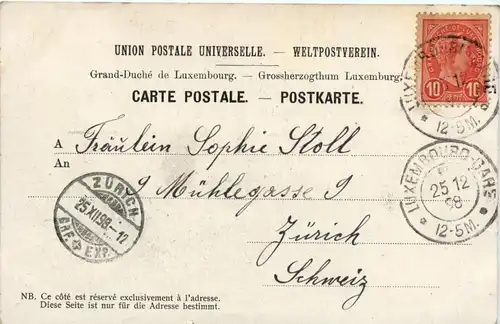 UNION POSTALE UNIVERSELLE. — WELTPOSTVEREIN.
Grand-Duché de Luxembourg. — Grossherzogthum Luxemburg.
CARTE POSTALE. — POSTKARTE.
10 10
12-5M.
A Fräulein Sophie Stoll
An
9 Mühlegasse 9
Zürich
Schweiz
LUXEMBOURG-GARE
25 12
98
12-5M.
ZÜRICH
25.XII.98.-12
BRF. EXP.
NB. Ce côté est réservé exclusivement à l'adresse.
Diese Seite ist nur für die Adresse bestimmt.